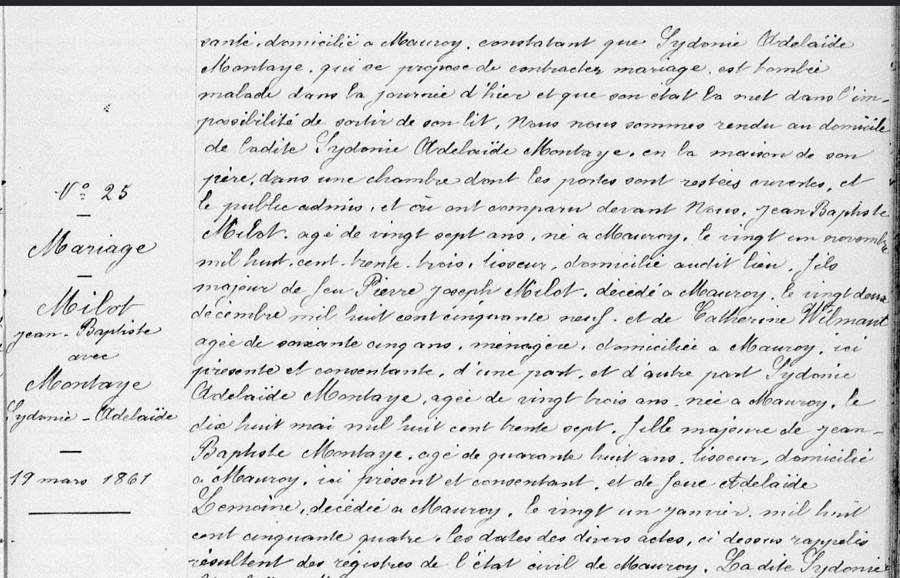 santé, domicilié a Mauroy, constatant que Sydonie Adelaïde
Montaye, qui se propose de contracter mariage, est tombée
malade dans la journée d'hier et que son état la met dans l'im-
possibilité de sortir de son lit, Nous nous sommes rendu au domicile
de ladite Sydonie Adelaïde Montaye, en la maison de son
père, dans une chambre dont les portes sont restées ouvertes, et
le public admis, et où ont comparu devant Nous, Jean Baptiste
Milot, agé de vingt sept ans, né a Mauroy, le vingt un novembre
mil huit cent trente trois, tisseur, domicilié audit lieu, fils
majeur de feu Pierre Joseph Milot, décédé a Mauroy, le vingt deux
décembre mil huit cent cinquante neuf, et de Catherine Wilmant
agée de soixante cinq ans, menagère, domiciliée a Mauroy, ici
présente et consentante, d'une part, et d'autre part Sydonie
Adelaïde Montaye, agée de vingt trois ans, née a Mauroy, le
dix huit mai mil huit cent trente sept, fille majeure de Jean-
Baptiste Montaye, agé de quarante huit ans, tisseur, domicilié
a Mauroy, ici présent et consentant, et de feue Adelaïde
Lemoine, décédée a Mauroy, le vingt un janvier, mil huit
cent cinquante quatre, les dates des divers actes, ci dessus rappelés
résultent des régistres de l'état civil de Mauroy, Ladite Sydonie
N° 25
Mariage
Milot
Jean-Baptiste
avec
Montaye
Sydonie-Adelaïde
19 mars 1861